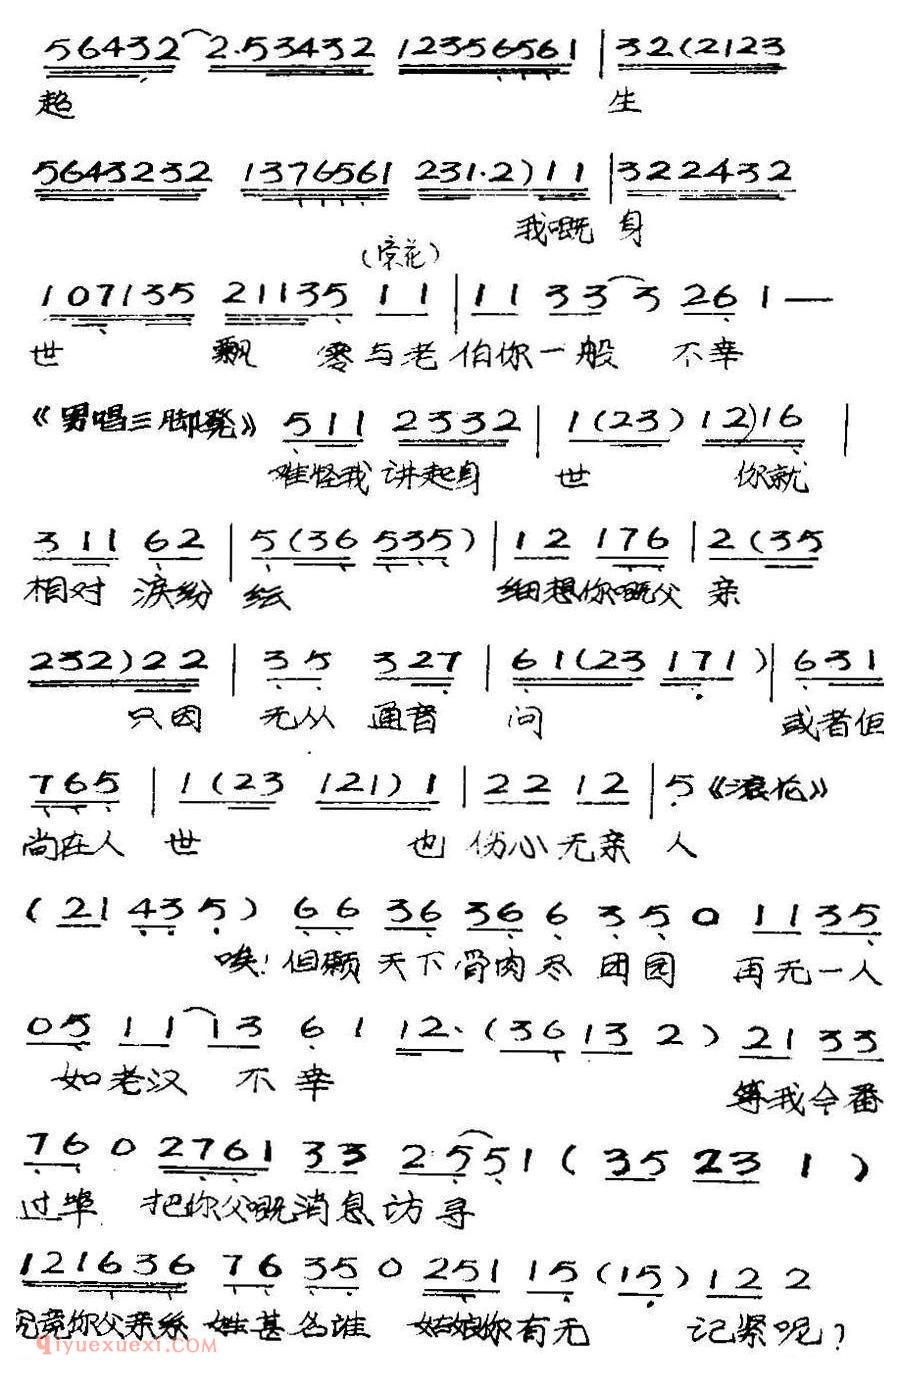 56432 2·53432 12356561 | 32(2123
超 生
5643232 1376561 231·2)11 | 322432
我嘅 身
(滚花)
107135 21135 11 | 11 33 3 26 1 —
世 飘 零与老伯你一般 不幸
《男唱三脚凳》 511 2332 | 1(23) 12)16 |
难怪我 讲起身 世 你就
311 62 | 5(36 535) | 12 176 | 2(35
相对 泪纷 纭 细想你嘅父 亲
232)22 | 35 327 | 61(23 171) | 631
只因 无从 通音 问 或者佢
765 | 1(23 121)1 | 22 12 | 5《滚花》
尚在人 世 也 伤心无亲 人
(21 43 5) 66 36 36 6 35 0 1135
唉!但愿 天下骨肉尽 团圆 再无一人
05 11 13 6 1 12· (3613 2) 21 33
如老汉 不幸 等我今番
76 0 2761 33 25 51 (35 23 1)
过埠 把你父嘅消息访寻
121636 76 35 0 251 15 (15) 12 2
究竟你父亲系 姓甚名谁 姑娘你有无 记紧呢?
qiyuexuexi.com